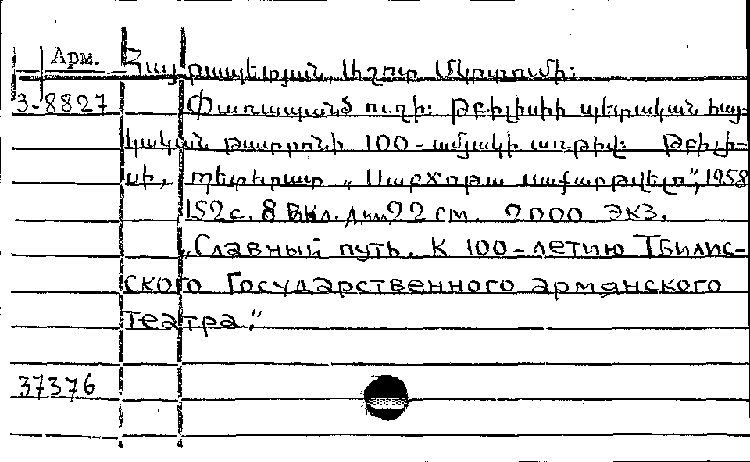 Арм. Հայրապետյան, Աշոտ Մկրտումի:
3-8827 Փառապանծ ուղի: Թբիլիսիի պետական հայ-
կական թատրոնի 100-ամյակի առթիվ: Թբիլի-
սի, պետհրատ „Սաբճոթա սաքարթվելո”, 1958
152 с. 8 вкл. илл. 22 см. 2000 экз.
„Славный путь. К 100-летию Тбилис-
ского Государственного армянского
театра.”
37376